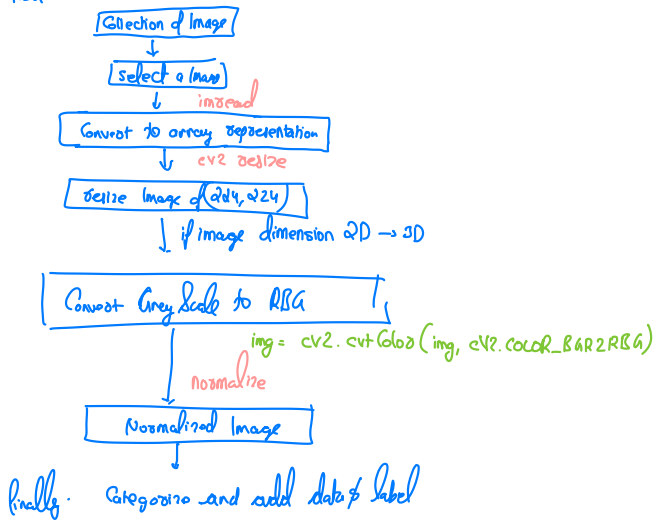 Collection of Image
Select a Image
imread
Convert to array representation
cv2 resize
resize Image of (224, 224)
if image dimension 2D → 3D
Convert Grey Scale to RBG
img = cv2.cvtColor(img, cv2.COLOR_BGR2RBG)
normalize
Normalized Image
finally. Categorize and add data & label